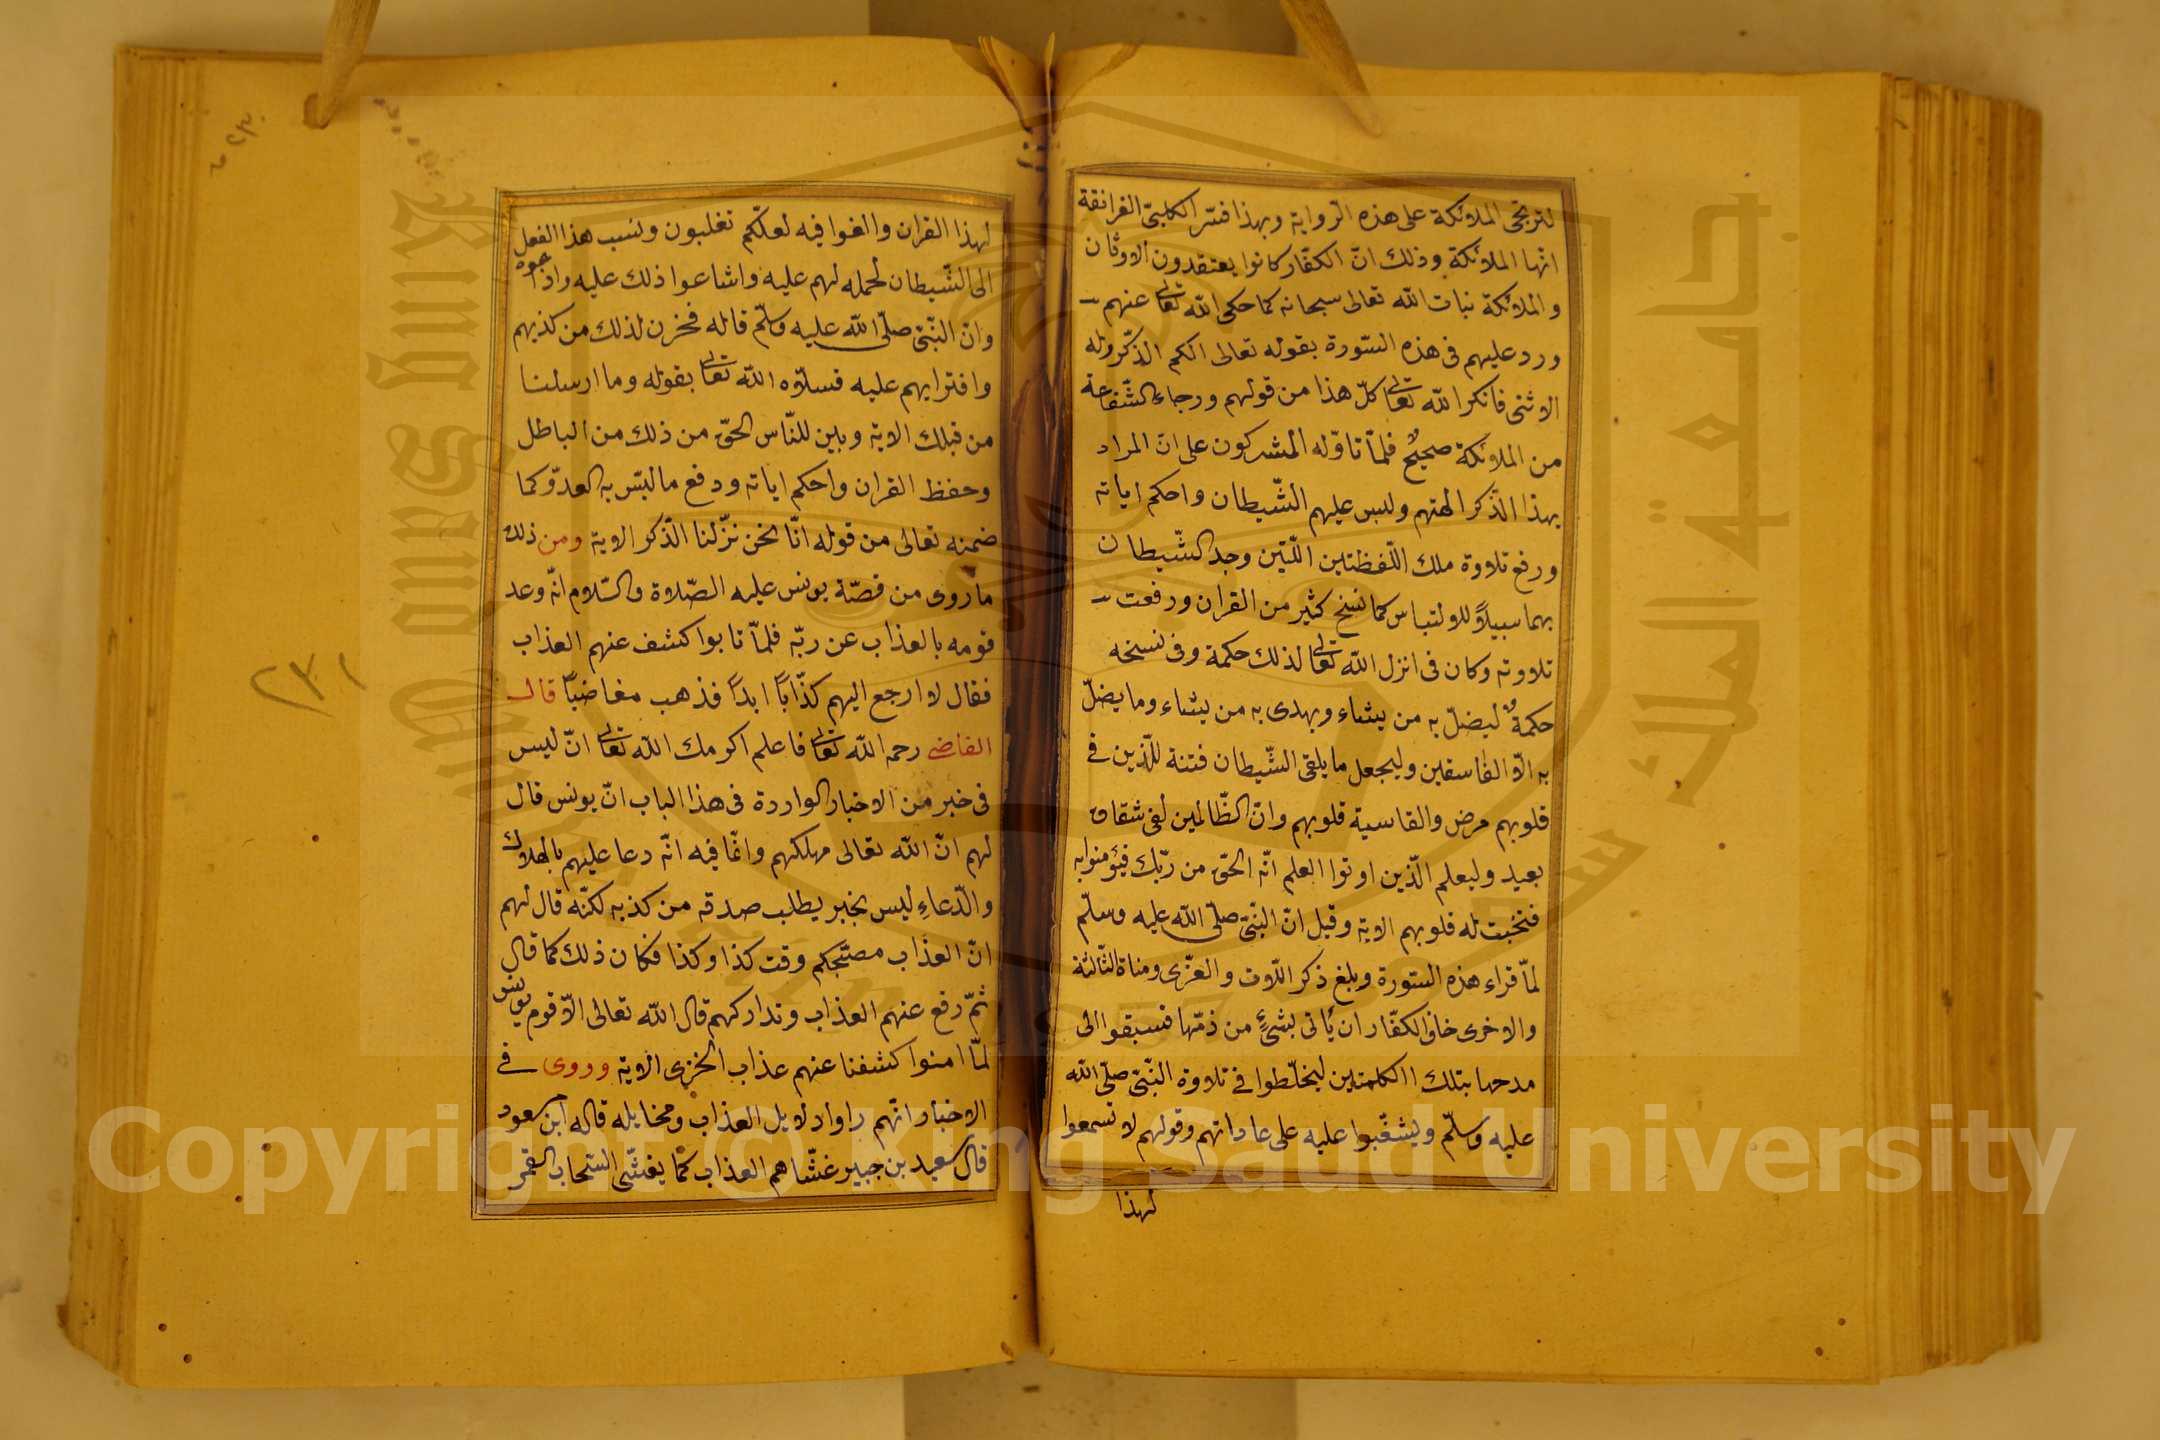 لترتجى الملائكة على هذه الرواية وبهذا فسّر الكلبيّ الغرانقة
انها الملائكة وذلك انّ الكفّار كانوا يعتقدون الاوثان
والملائكة بنات الله تعالى سبحانه كما حكى الله تعالى عنهم
ورد عليهم فى هذه السّورة بقوله تعالى الكم الذّكر وله
الانثى فانكر الله تعالى كلّ هذا من قولهم ورجاء الشّفاعة
من الملائكة صحيحٌ فلمّا تاوّله المشركون على انّ المراد
بهذا الذّكر الهتهم ولبس عليهم الشّيطان واحكم اياته
ورفع تلاوة ملك اللّفظتين اللّتين وجد الشّيطان
بهما سبيلاً للالتباس كما نسخ كثير من القران ورفعت
تلاوته وكان فى انزل الله تعالى لذلك حكمة وفى نسخه
حكمةٌ ليضلّ به من يشاء ويهدى به من يشاء وما يضلّ
به الّا الفاسقين وليجعل ما يلقى الشّيطان فتنة للّذين فى
قلوبهم مرض والقاسية قلوبهم وانّ الظّالمين لفى شقاق
بعيد وليعلم الّذين اوتوا العلم انّه الحقّ من ربّك فيؤمنوا به
فتخبت له قلوبهم الاية وقيل انّ النّبىّ صلّى الله عليه وسلّم
لمّا قراء هذه السّورة وبلغ ذكر اللّات والعزّى ومناة الثّالثة
والاخرى خاف الكفّار ان يأتى بشئٍ من ذمّها فسبقوا الى
مدحها بتلك الكلمتين ليخلّطوا فى تلاوة النّبىّ صلّى الله
عليه وسلّم ويشغّبوا عليه على عاداتهم وقولهم لا تسمعوا
لهذا
لهذا القران والغوا فيه لعلّكم تغلبون ونسب هذا الفعل
الى الشّيطان لحمله لهم عليه واشاعوا ذلك عليه واذاعوه
وانّ النّبىّ صلّى الله عليه وسلّم قاله فحزن لذلك من كذبهم
وافترايهم عليه فسلّاه الله تعالى بقوله وما ارسلنا
من قبلك الاية وبين للنّاس الحقّ من ذلك من الباطل
وحفظ القران واحكم اياته ودفع ما لبّس به العدوّ كما
ضمنه تعالى من قوله انّا نحن نزّلنا الذّكر الاية ومن ذلك
ما روى من قصّة يونس عليه الصّلاة والسّلام انّه وعد
قومه بالعذاب عن ربّه فلمّا تابوا كشف عنهم العذاب
فقال لا ارجع اليهم كذّاباً ابداً فذهب مغاضباً قال
القاضى رحمه الله تعالى فاعلم اكرمك الله تعالى انّ ليس
فى خبر من الاخبار الواردة فى هذا الباب انّ يونس قال
لهم انّ الله تعالى مهلككم وانّما فيه انّه دعا عليهم بالهلاك
والدّعاءِ ليس بخبر يطلب صدقه من كذبه لكنّه قال لهم
انّ العذاب مصبّحكم وقت كذا وكذا فكان ذلك كما قال
ثمّ رفع عنهم العذاب وتداركهم قال الله تعالى الّا قوم يونس
لمّا امنوا كشفنا عنهم عذاب الخزى الاية وروى فى
الاخبار انّهم راوا دلايل العذاب ومخايله قاله ابن مسعود
قال سعيد بن جبير غشّاهم العذاب كما يغشّى السّحاب القمر
٢٣١
جامعة الملك سعود
King Saud University
Copyright © King Saud University